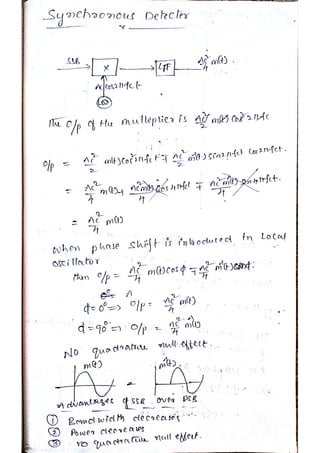 Synchronous Detector
SSB → X → LPF → Ac²/4 m(t).
Ac cos2πfct
LO
The O/p of the multeplier is Ac²/2 m(t) cos²2πfc
O/p = Ac²/2 m(t) cos²2πfct ∓ Ac²/2 m̂(t) sin2πfct cos2πfct.
= Ac²/4 m(t) + Ac²/4 m(t) cos4πfct ∓ Ac²/4 m̂(t) sin4πfct.
= Ac²/4 m(t)
when phase shift is introduced in Local
oscillator
then O/p = Ac²/4 m(t) cosϕ ∓ Ac²/4 m̂(t) sinϕ.
ϕ=0° => O/p = Ac²/4 m(t)
ϕ=90° => O/p = Ac²/4 m̂(t)
NO quadrature null effect.
m(t) m̂(t)
Advantages of SSB over DSB
① Bandwidth decreases
② Power decreases
③ NO quadrature null effect.